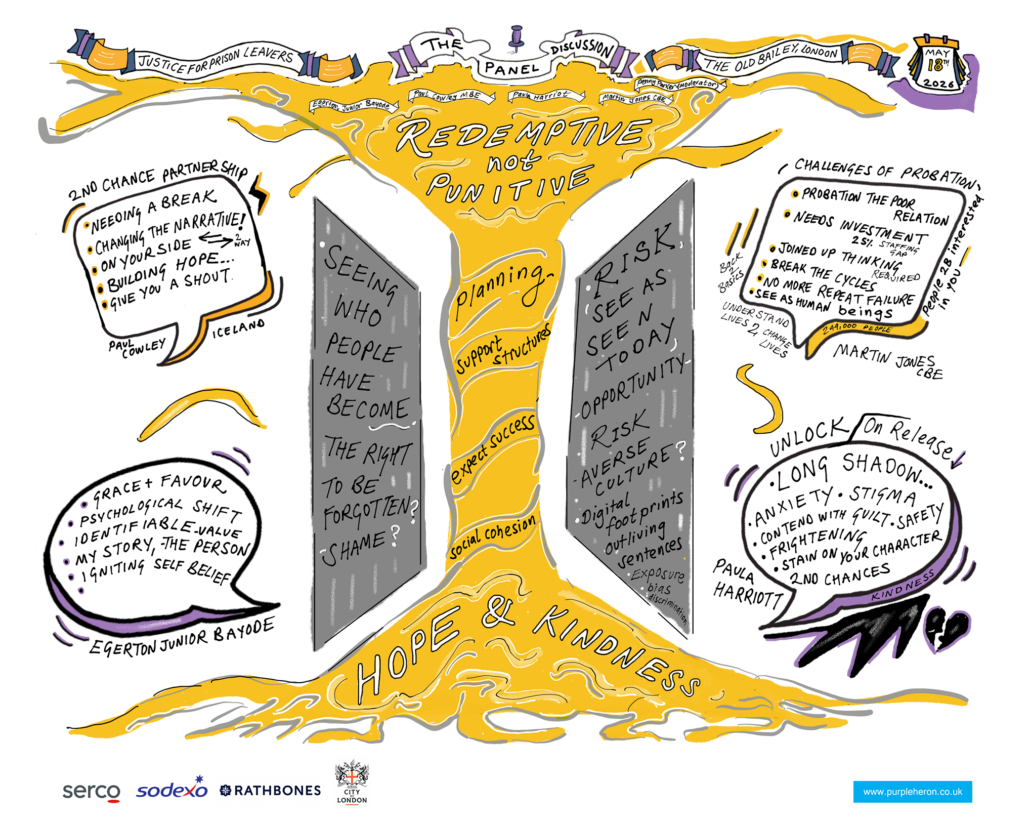 JUSTICE FOR PRISON LEAVERS
THE
PANEL
DISCUSSION
THE OLD BAILEY, LONDON
MAY
18TH
2026
Egerton Junior Bayode
Paul Cowley MBE
Paula Harriot
Martin Jones CBE
Penny Parker (moderator)
REDEMPTIVE
not
PUNITIVE
2ND CHANCE PARTNERSHIP
• NEEDING A BREAK
• CHANGING THE NARRATIVE!
• ON YOUR SIDE 2 WAY
• BUILDING HOPE...
• GIVE YOU A SHOUT.
PAUL
COWLEY
ICELAND
• GRACE + FAVOUR
• PSYCHOLOGICAL SHIFT
• IDENTIFIABLE-VALUE
• MY STORY, THE PERSON
• IGNITING SELF BELIEF
EGERTON JUNIOR BAYODE
SEEING
WHO
PEOPLE
HAVE
BECOME
THE RIGHT
TO BE
FORGOTTEN?
SHAME?
planning
support
structures
expect success
social cohesion
HOPE & KINDNESS
RISK
SEE AS
SEE N
TODAY
OPPORTUNITY
RISK
AVERSE
CULTURE?
• Digital
footprints
outliving
sentences
• Exposure
bias
discrimination
CHALLENGES OF PROBATION
People 2B interested
in you
• PROBATION THE POOR
RELATION
• NEEDS INVESTMENT
25% STAFFING
GAP
• JOINED UP THINKING
REQUIRED
• BREAK THE CYCLES
• NO MORE REPEAT FAILURE
• SEE AS HUMAN beings
244,000 PEOPLE
Back
2
Basics
UNDERSTAND
LIVES 2 CHANGE
LIVES
MARTIN JONES
CBE
UNLOCK
On Release
• LONG SHADOW...
• ANXIETY • STIGMA
• CONTEND WITH GUILT • SAFETY
• FRIGHTENING
• STAIN ON YOUR CHARACTER
2ND CHANCES
KINDNESS
PAULA
HARRIOTT
serco
sodexo
RATHBONES
CITY
OF
LONDON
www.purpleheron.co.uk